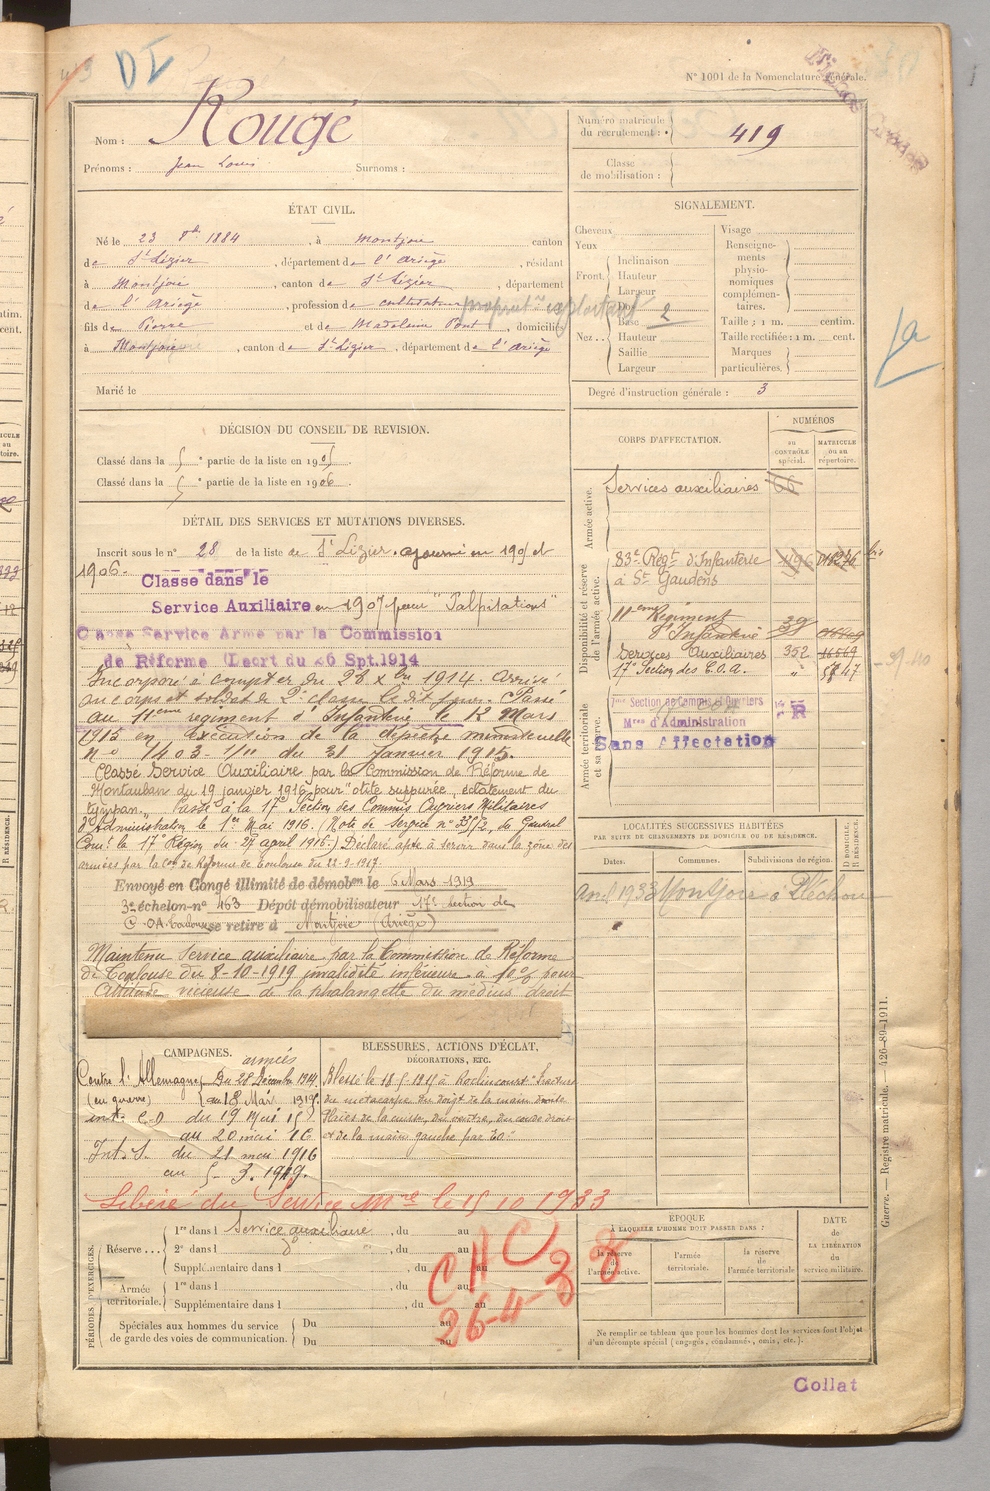 DI
N° 1001 de la Nomenclature générale.
Nom : Rougé
Prénoms : Jean Louis Surnoms :
Numéro matricule du recrutement : 419
Classe de mobilisation :
ÉTAT CIVIL.
Né le 23 1884, à Montjoie canton
de St Lizier, département de l'Ariège, résidant
à Montjoie, canton de St Lizier, département
de l'Ariège, profession de cultivateur propriét.re exploitant
fils de Pierre et de Madeleine Pont, domicilié
à Montjoie, canton de St Lizier, département de l'Ariège
Marié le
SIGNALEMENT.
Cheveux
Yeux
Front.
Inclinaison
Hauteur
Largeur
Nez...
Dos
Base 2
Hauteur
Saillie
Largeur
Visage
Renseignements physionomiques complémentaires.
Taille : 1 m. centim.
Taille rectifiée : 1 m. cent.
Marques particulières.
Degré d'instruction générale : 3
DÉCISION DU CONSEIL DE REVISION.
Classé dans la 5e partie de la liste en 1905.
Classé dans la 5e partie de la liste en 1906.
DÉTAIL DES SERVICES ET MUTATIONS DIVERSES.
Inscrit sous le n° 28 de la liste de St Lizier. ajourné en 1905 et
1906.
Classé dans le
Service Auxiliaire en 1907 pour "Palpitations"
Classé Service Armé par la Commission
de Réforme (Décrt du 26 Sept. 1914
Incorporé à compter du 28 Xbre 1914. Arrivé
au corps et soldat de 2e classe le dit jour. Passé
au 11ème régiment d'Infanterie le 12 Mars
1915 en exécution de la dépêche ministérielle
n° 1403-1/11 du 31 Janvier 1915.
Classé Service Auxiliaire par la Commission de Réforme de
Montauban du 19 janvier 1916 pour "otite suppurée, éclatement du
tympan". Passé à la 17e Section des Commis Ouvriers Militaires
d'Administration le 1er Mai 1916. (Note de Service n° 335/2 du Général
Comt la 17e Région du 27 april 1916.) Déclaré apte à servir dans la zone des
armées par la Con de Réforme de Toulouse du 22-9-1917.
Envoyé en Congé illimité de démobon le 6 Mars 1919
3e échelon-n° 463 Dépôt démobilisateur 17e Section de
C.OA. Toulouse se retire à Montjoie (Ariège)
Maintenu Service auxiliaire par la Commission de Réforme
de Toulouse du 8-10-1919 invalidité inférieure à 10% pour
Attitude vicieuse de la phalangette du médius droit
CORPS D'AFFECTATION.
NUMÉROS
au CONTRÔLE spécial.
MATRICULE ou au répertoire.
Armée active.
Services auxiliaires
Disponibilité et réserve de l'armée active.
83e Régt d'Infanterie
à St Gaudens
11ème Régiment
d'Infanterie 39
Services Auxiliaires 352 16569
17e Section des C.O.A. " 5847
Armée territoriale et sa réserve.
17me Section de Commis et Ouvriers
Mres d'Administration
Sans Affectation
LOCALITÉS SUCCESSIVES HABITÉES
PAR SUITE DE CHANGEMENTS DE DOMICILE OU DE RÉSIDENCE.
Dates.
Communes.
Subdivisions de région.
D DOMICILE,
R RÉSIDENCE.
Avril 1933 Montjoie
CAMPAGNES.
armées
Contre l'Allemagne Du 28 Décembre 1914
(en guerre) au 18 Mai 1915
int. C.D du 19 Mai 15
au 20 mai 16
Int. S. du 21 mai 1916
au 5-3.1919.
BLESSURES, ACTIONS D'ÉCLAT,
DÉCORATIONS, ETC.
Blessé le 18-5-1915 à Roclincourt "fracture
du métacarpe du doigt de la main droite
Plaies de la cuisse, du ventre, du coude droit
et de la main gauche par EO."
Libéré du Service Mre le 15 10 1933
PÉRIODES D'EXERCICES.
Réserve...
1re dans l Service auxiliaire, du au
2e dans l , du au
Supplémentaire dans l , du au
Armée territoriale.
1re dans l , du au
Supplémentaire dans l , du au
Spéciales aux hommes du service de garde des voies de communication.
Du au
Du au
CHC
26-4-38
ÉPOQUE
À LAQUELLE L'HOMME DOIT PASSER DANS :
la réserve de l'armée active.
l'armée territoriale.
la réserve de l'armée territoriale
DATE de LA LIBÉRATION du service militaire.
Ne remplir ce tableau que pour les hommes dont les services font l'objet
d'un décompte spécial (engagés, condamnés, omis, etc.).
Guerre. — Registre matricule. — 426-89-1911.
Collat